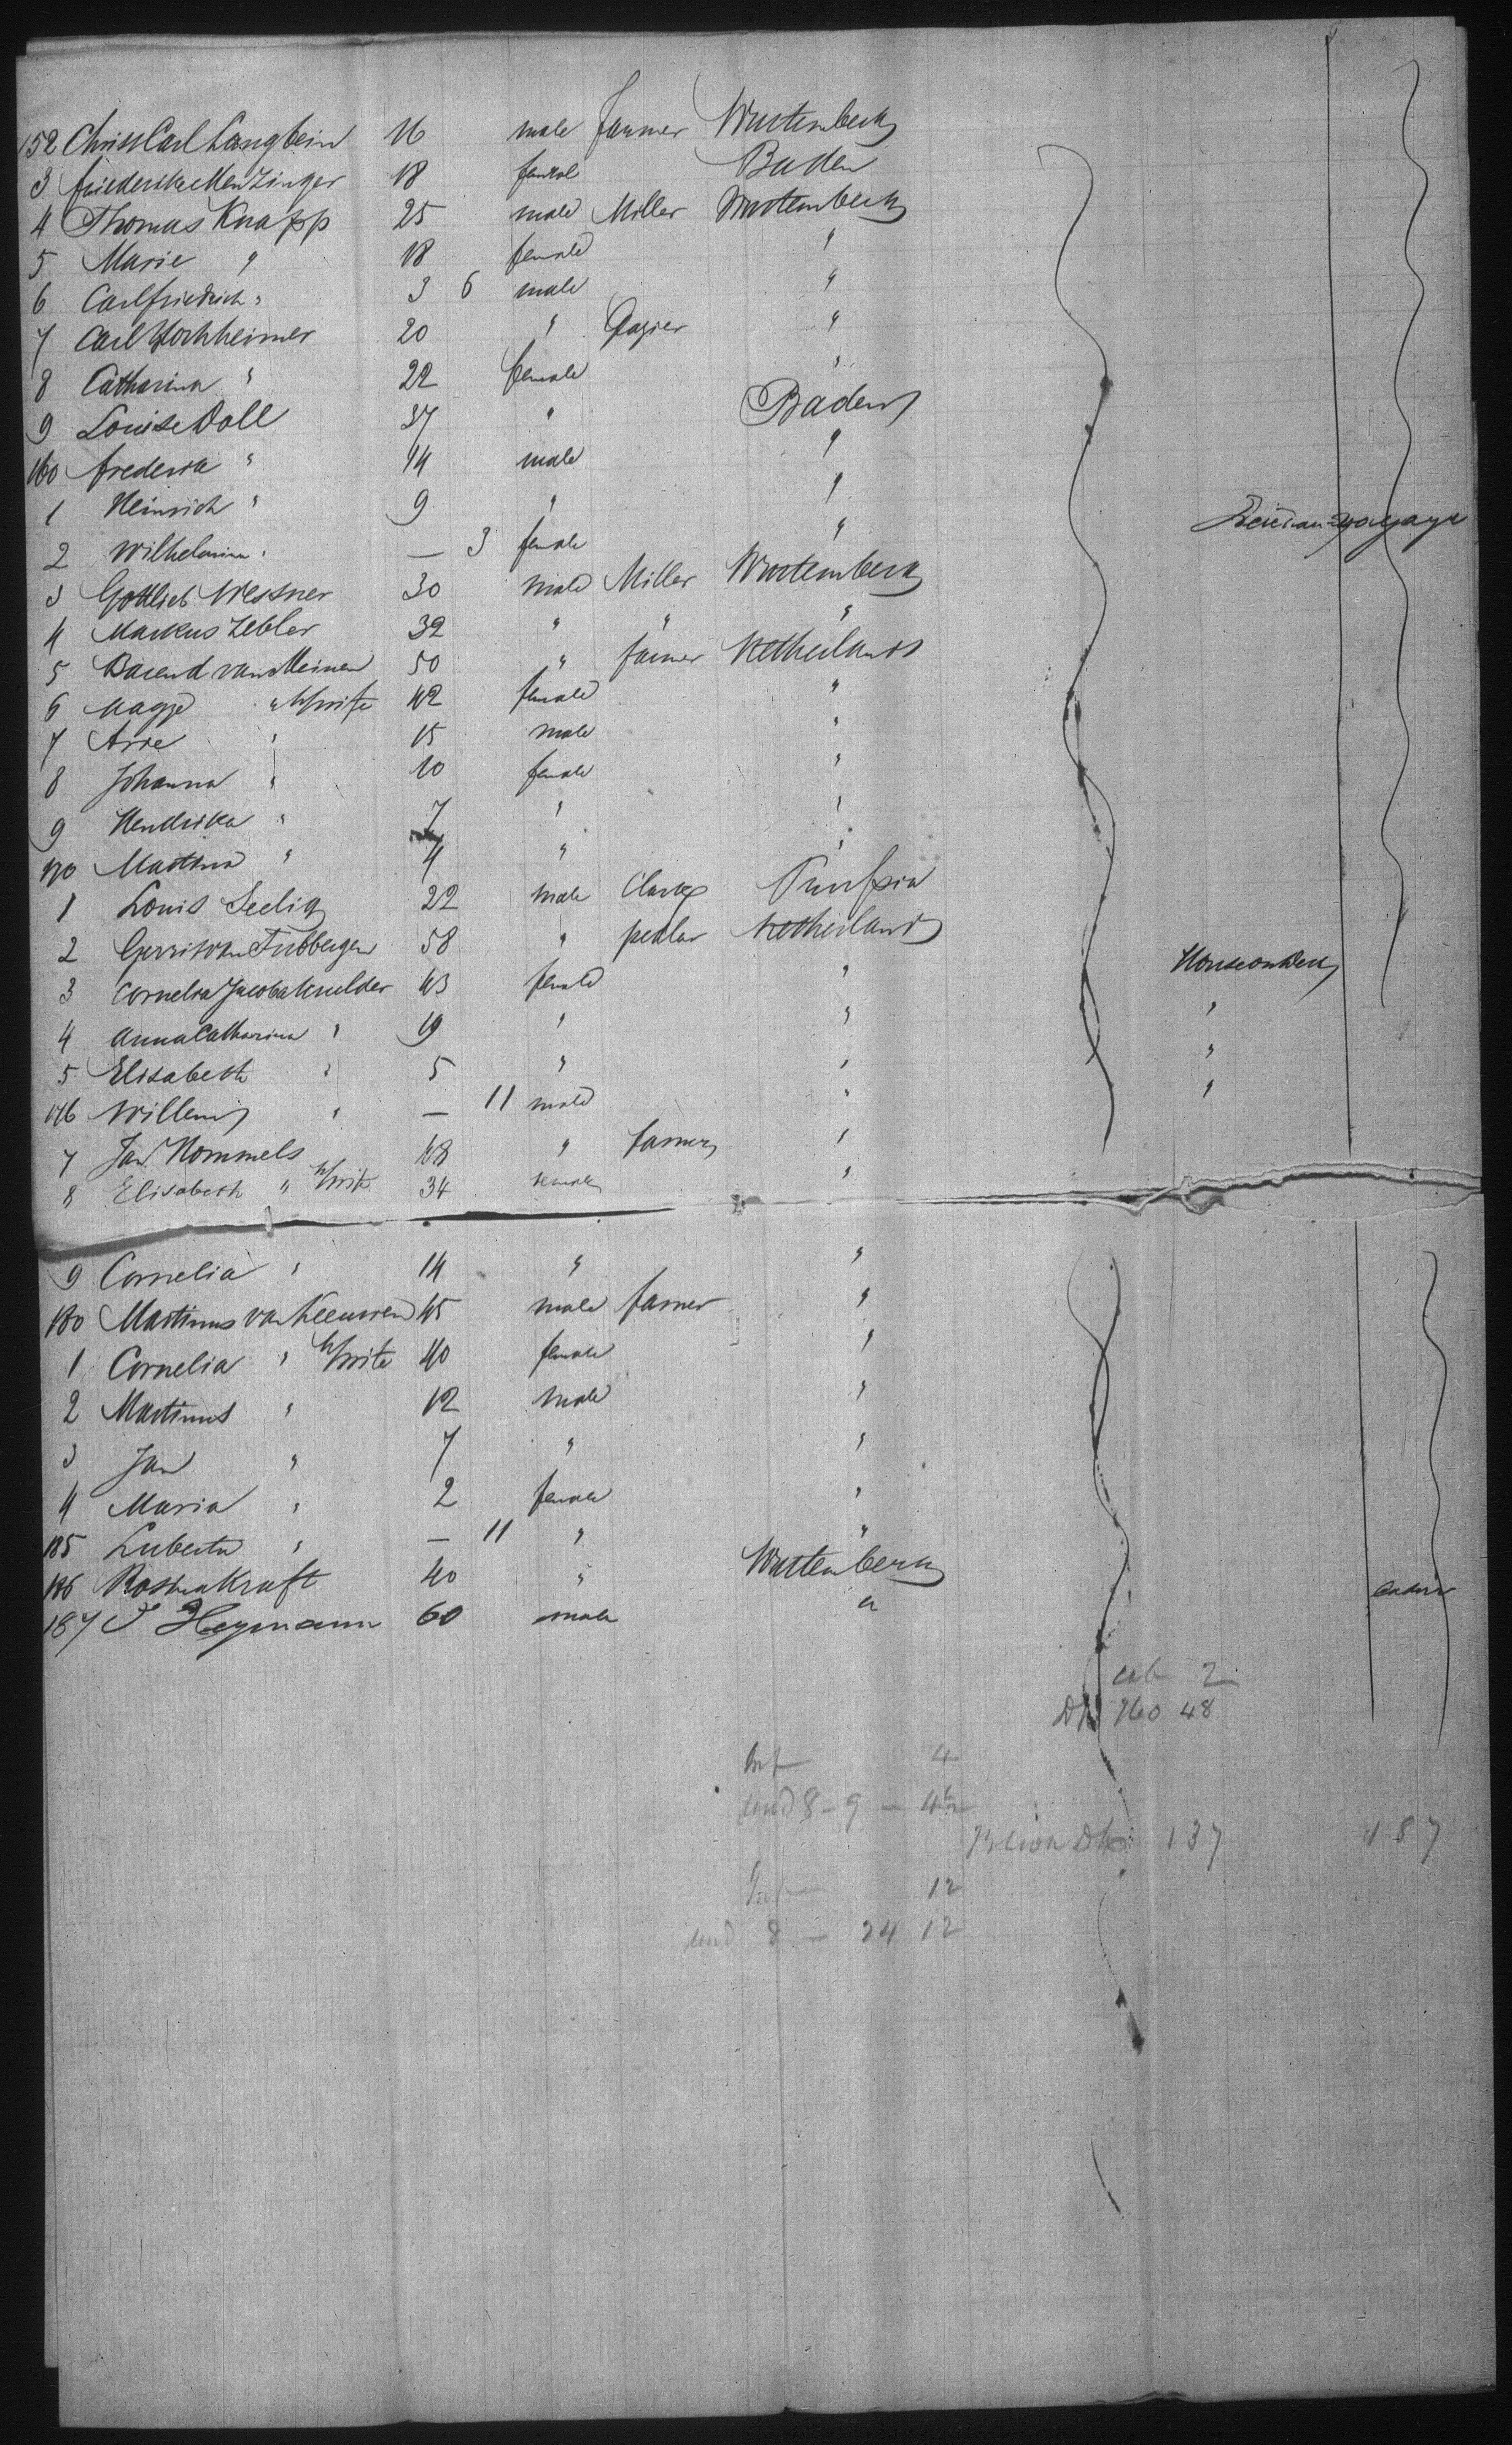 152 Christ Carl Langbein 16 male farmer Wurtemberg
3 Friederike Menzinger 18 female Baden
4 Thomas Knapp 25 male Miller Wurtemberg
5 Marie " 18 female "
6 Carl friedrich " 3 6 male "
7 Carl Hochheimer 20 " "
8 Catharina " 22 female "
9 Louise Doll 37 " Baden
160 frederik " 14 male "
1 Heinrich " 9 " "
2 Wilhelmina " — 3 female "
3 Gottlieb Wessner 30 male Miller Wurtemberg
4 Markus Zebler 32 " " "
5 Barend van Meinen 50 " farmer Netherlands
6 " h/wife 42 female "
7 Arie " 15 male "
8 Johanna " 10 female "
9 Hendrika " 7 " "
170 Martina " 4 " "
1 Louis Seelig 22 male Clark Prussia
2 Gerrit van Tubbergen 58 " pedlar Netherlands
3 Cornelia Jacoba Mulder 43 female " House on Deck
4 Anna Catharina " 19 " " "
5 Elisabeth " 5 " " "
176 Willem " — 11 male " "
7 Jan Hommels 48 " farmer "
8 Elisabeth " h/wife 34 female "
9 Cornelia " 14 " "
180 Martinus van Leeuwen 45 male farmer "
1 Cornelia " h/wife 40 female "
2 Martinus " 12 male "
3 Jan " 7 " "
4 Maria " 2 female "
185 Luberta " — 11 " "
186 Rosina Kraft 40 " Wurtemberg
187 J Heymann 60 male "
cab 2
48
Inf 4
und 8 - 9 —
137 187
Inf 12
und 8 — 24 12